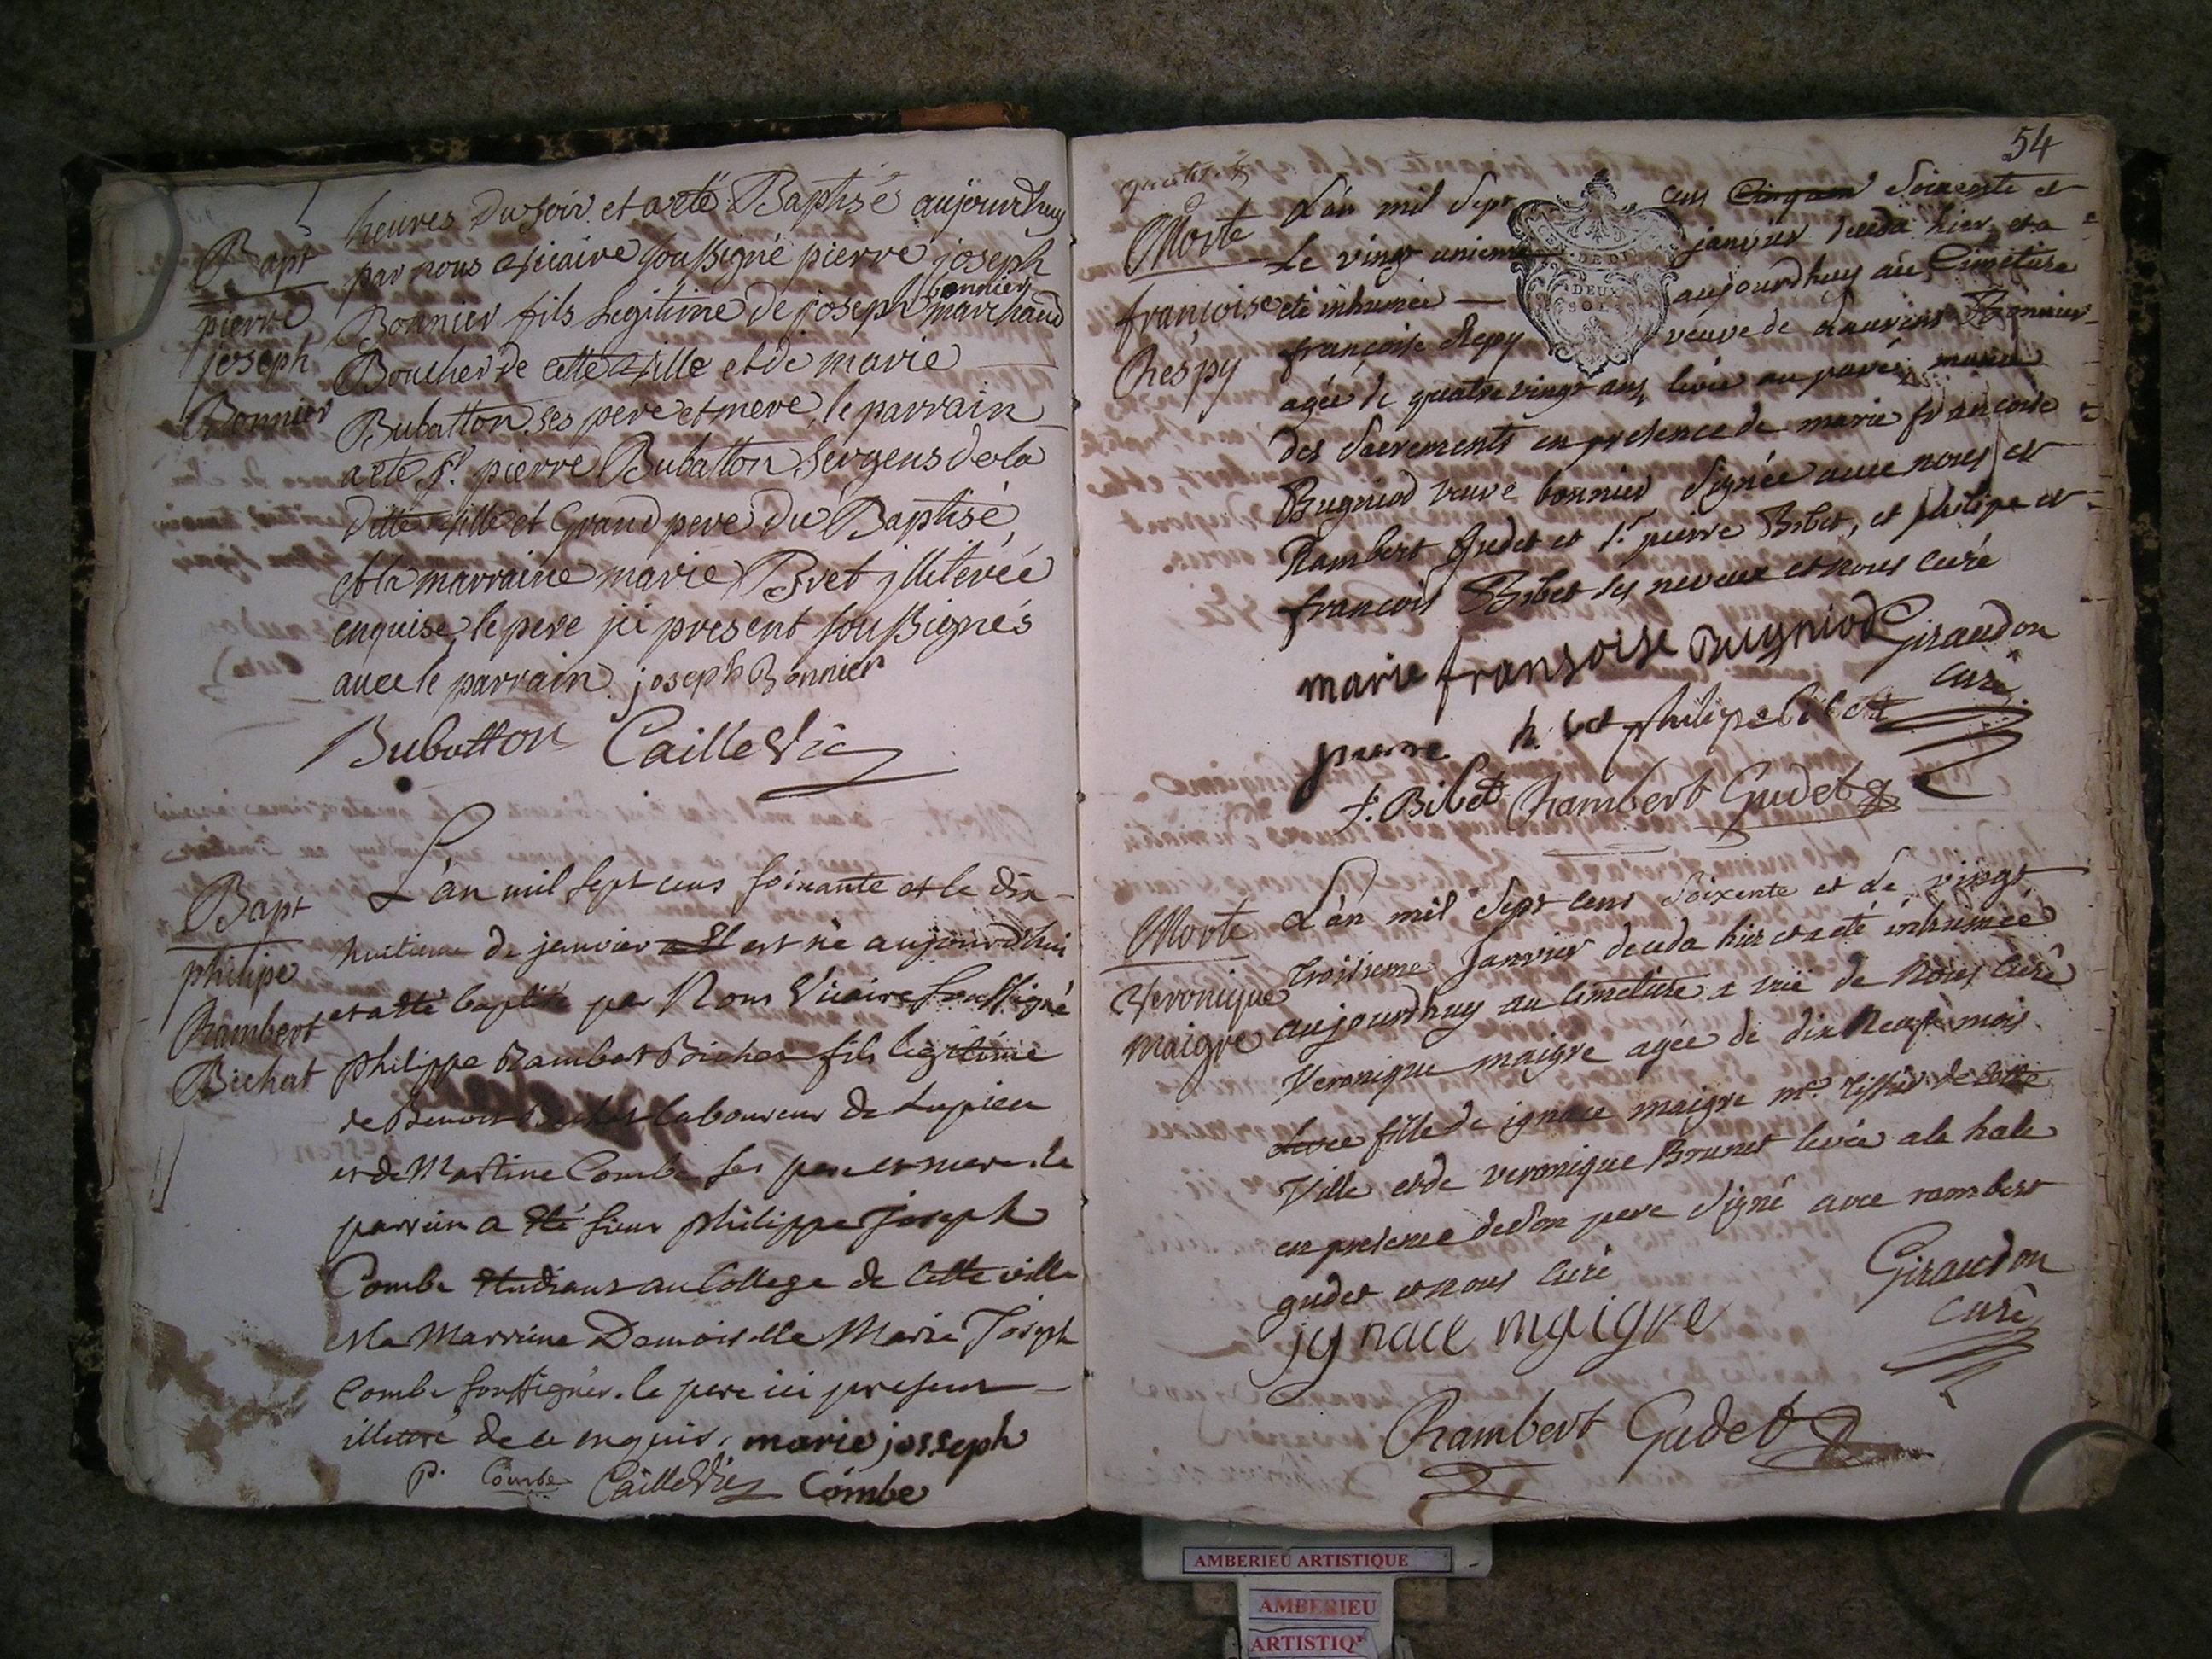 heures du soir et a eté Baptisé aujourdhuy
Bapt
par nous vicaire soussigné pierre joseph
pierre
joseph
Bonnier
bonnier
Bonnier fils Legitime de joseph marchand
Boucher de cette ville et de marie
Bubatton ses pere et mere, le parrain
a eté Sr. pierre Bubatton Sergens de la
ditte ville et Grand pere du Baptisé,
et la marraine marie Bret jlliterée
enquise, le pere jci present soussignés
avec le parrain. joseph Bonnier
Bubatton Caille Vic
Bapt
philipe
Rambert
Bichat
L'an mil sept cens soixante et le dix-
huitieme de janvier est né aujourd'hui
et a été baptisé par Nous Vicaire soussigné
philippe Rambert Bichat fils legitime
de Benoit Bichat laboureur de
et de Martine Combe ses pere et mere. le
parrein a été sieur philippe Joseph
Combe étudiant au College de Cette ville
et la Marreine Demoiselle Marie Joseph
Combe soussignés. le pere ici present
illitteré de ce enquis. marie josseph
P. Combe Caille Vic Combe
54
Morte
françoise
Respy
L'an mil sept cens soixente et
Le vingt unieme janvier deceda hier et a
eté inhumée aujourdhuy au Cimetiere
françoise Repy veuve de Laurent Bonnier
agée de quatre vingt ans, levée au pavé, munie
des sacrements en presence de marie françoise
Bugniod veuve bonnier signée avec nous et
Rambert Gudet et Sr pierre Bibet, et philipe et
françois Bibet ses neveux et nous curé
marie fransoise Bugniod Giraudon
curé
pierre philipe bibet
f. Bibet Rambert Gudet
Morte
Veronique
maigre
L'an mil sept cens soixente et Le vingt
troisieme Janvier deceda hier et a eté inhumée
aujourdhuy au Cimetiere de Nous curé
Veronique maigre agée de dix Neuf mois
fille de ignace maigre me. tissier de cette
Ville et de veronique Brunet levée a la hale
en presence de son pere signé avec rambert
gudet et nous curé
Giraudon
curé
jgnace maigre
Rambert Gudet
CEN. DE DIJON
DEUX
SOLS
AMBERIEU ARTISTIQUE
AMBERIEU
ARTISTIQ